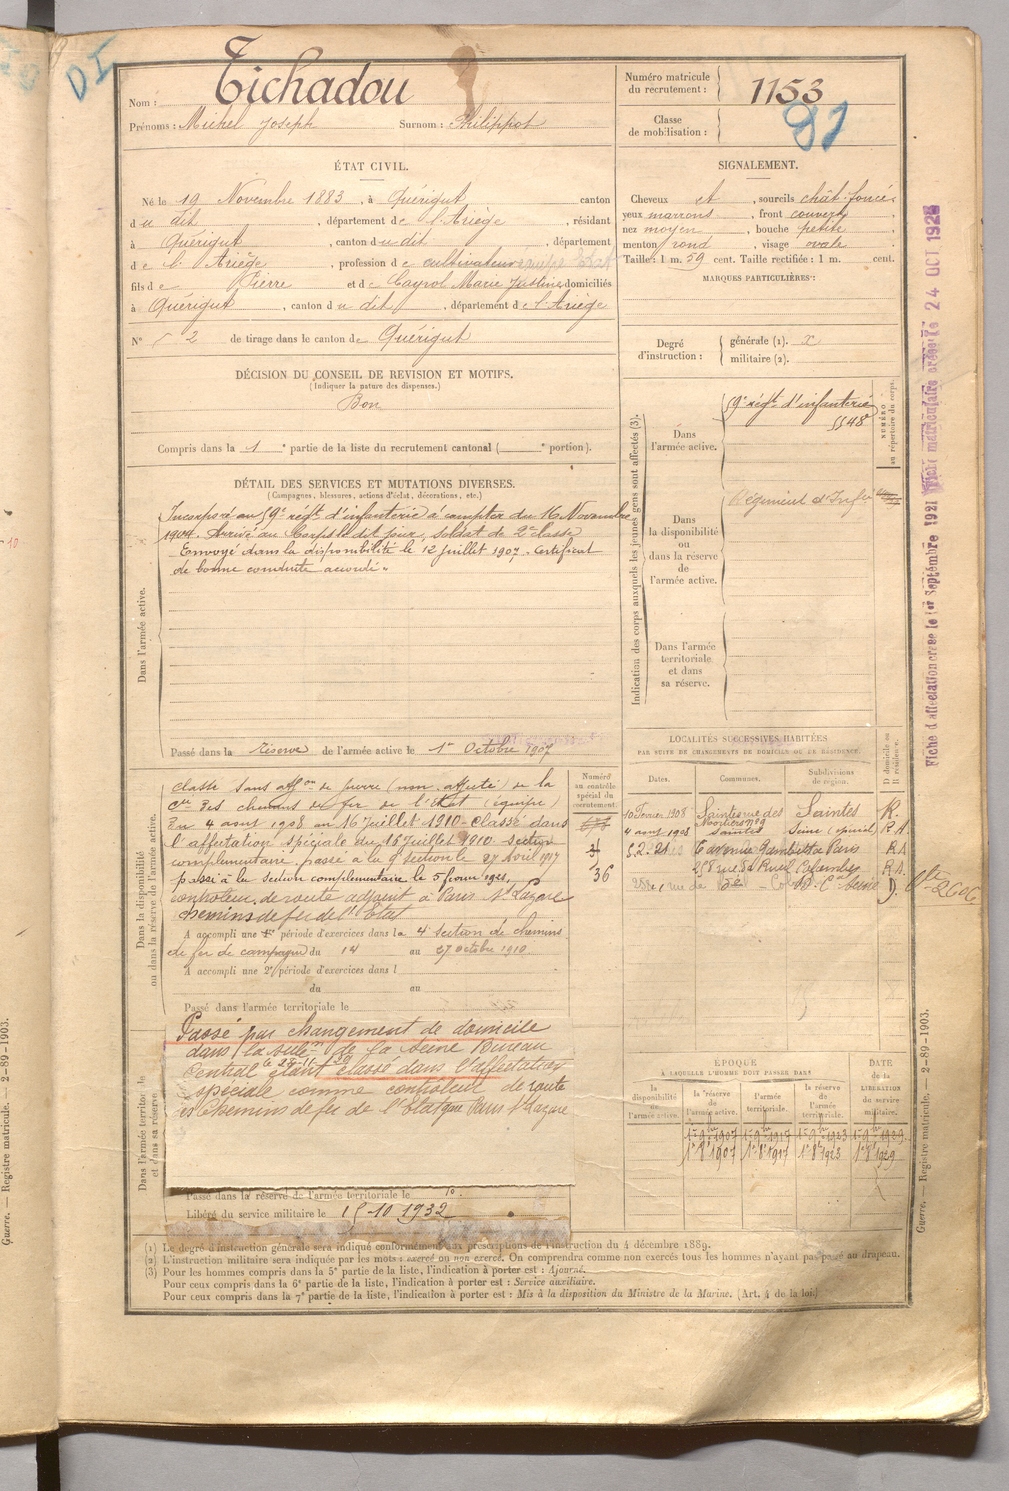 DI
Nom : Tichadou
Prénoms : Michel Joseph Surnom : Philippot
Numéro matricule du recrutement : 1153
Classe de mobilisation :
ÉTAT CIVIL.
Né le 19 Novembre 1883, à Quérigut canton
du dit, département de l'Ariège, résidant
à Quérigut, canton du dit, département
de l'Ariège, profession de cultivateur
fils de Pierre et de Cayrol Marie Justine domiciliés
à Quérigut, canton du dit, département de l'Ariège
N° 2 de tirage dans le canton de Quérigut
SIGNALEMENT.
Cheveux et, sourcils chât. foncé
yeux marrons, front couvert
nez moyen, bouche petite
menton rond, visage ovale
Taille : 1 m. 59 cent. Taille rectifiée : 1 m. cent.
MARQUES PARTICULIÈRES :
Degré d'instruction : générale (1).
militaire (2).
DÉCISION DU CONSEIL DE REVISION ET MOTIFS.
(Indiquer la nature des dispenses.)
Bon
Compris dans la 1e partie de la liste du recrutement cantonal (e portion).
DÉTAIL DES SERVICES ET MUTATIONS DIVERSES.
(Campagnes, blessures, actions d'éclat, décorations, etc.)
Dans l'armée active.
Incorporé au 59e régt d'infanterie à compter du 16 Novembre
1904. Arrivé au Corps le dit jour, soldat de 2e classe
Envoyé dans la disponibilité le 12 juillet 1907. Certificat
de bonne conduite accordé.
Passé dans la réserve de l'armée active le 1er Octobre 1907
Indication des corps auxquels les jeunes gens sont affectés (3).
NUMÉRO au répertoire du corps.
Dans l'armée active.
59e régt d'infanterie
5548
Dans la disponibilité ou dans la réserve de l'armée active.
Régiment d'Infie
Dans l'armée territoriale et dans sa réserve.
Fiche d'affectation créée le 1er Septembre 1921 Fiche matriculaire créée le 24 OCT 1928
Dans la disponibilité ou dans la réserve de l'armée active.
classé sans affon de guerre (non affecté) de la
Cie des chemins de fer de l'Etat (équipe)
Du 4 aout 1908 au 16 Juillet 1910 - Classé dans
l'affectation spéciale du 16 juillet 1910 section
complémentaire. passé à la 9e section le 27 Avril 1917
passé à la section complémentaire le 5 fevrier 1921,
controleur de route adjoint à Paris St Lazare
chemins de fer de l'Etat
A accompli une 1re période d'exercices dans la 4e section de chemins
de fer de campagne du 14 au 27 octobre 1910
A accompli une 2e période d'exercices dans l
du au
Passé dans l'armée territoriale le
Numéro au contrôle spécial du recrutement.
36
LOCALITÉS SUCCESSIVES HABITÉES
PAR SUITE DE CHANGEMENTS DE DOMICILE OU DE RÉSIDENCE.
Dates. Communes. Subdivisions de région. D domicile ou R résidence.
10 Fevrier 1908 Saintes rue des Saintes R.
4 aout 1908 Saintes Seine (spécial) R A.
5.2.21 6 avenue Gambetta Paris R A
258 rue Colombes R A.
D.
Dans l'armée territoriale et dans sa réserve.
Passé par changement de domicile
dans la subdon de la Seine Bureau
Central étant classé dans l'affectation
spéciale comme controleur de route
des Chemins de fer de l'Etat gare Paris St Lazare
Passé dans la réserve de l'armée territoriale le
Libéré du service militaire le 15-10 1932
ÉPOQUE
À LAQUELLE L'HOMME DOIT PASSER DANS
la disponibilité de l'armée active. la réserve de l'armée active. l'armée territoriale. la réserve de l'armée territoriale. DATE de la LIBÉRATION du service militaire.
1er 9bre 1907 1er 9bre 1917 1er 9bre 1923 1er 9bre 1929
1er 8bre 1907 1er 8bre 1917 1er 8bre 1923 1er 8bre 1929
(1) Le degré d'instruction générale sera indiqué conformément aux prescriptions de l'instruction du 4 décembre 1889.
(2) L'instruction militaire sera indiquée par les mots : exercé ou non exercé. On comprendra comme non exercés tous les hommes n'ayant pas passé au drapeau.
(3) Pour les hommes compris dans la 5e partie de la liste, l'indication à porter est : Ajourné.
Pour ceux compris dans la 6e partie de la liste, l'indication à porter est : Service auxiliaire.
Pour ceux compris dans la 7e partie de la liste, l'indication à porter est : Mis à la disposition du Ministre de la Marine. (Art. 4 de la loi.)
Guerre. — Registre matricule. — 2-89-1903.
Guerre. — Registre matricule. — 2-89-1903.